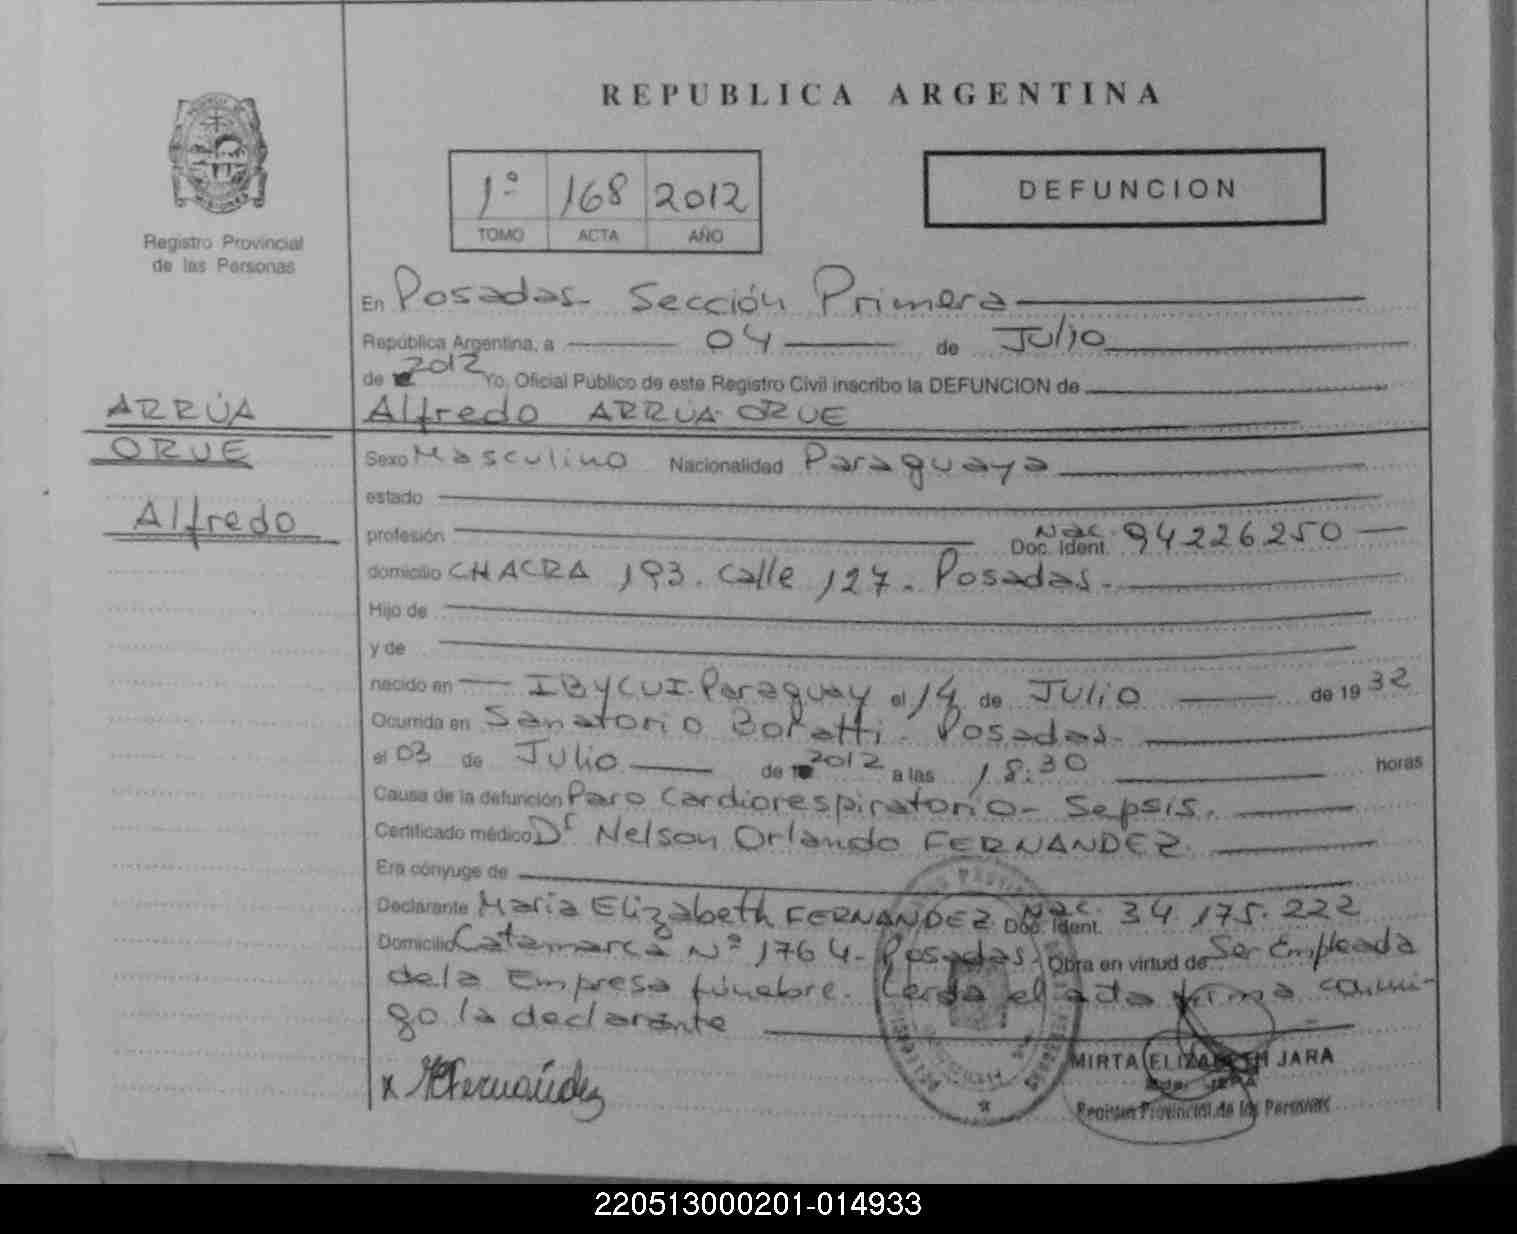 REPUBLICA ARGENTINA
Registro Provincial
de las Personas
1º 168 2012
TOMO ACTA AÑO
DEFUNCION
En Posadas - Sección Primera
República Argentina, a 04 de Julio
de 2012 Yo, Oficial Público de este Registro Civil inscribo la DEFUNCION de
ARRÚA
ORUE
Alfredo
Alfredo ARRÚA ORUE
Sexo Masculino Nacionalidad Paraguaya
estado
profesión Doc. Ident. Nac. 94226250
domicilio CHACRA 193. Calle 127. Posadas.
Hijo de
y de
nacido en IBYCUI-Paraguay el 14 de JULIO de 1932
Ocurrida en Sanatorio Boratti. Posadas.
el 03 de JULIO de 2012 a las 18:30 horas
Causa de la defunción Paro Cardiorespiratorio - Sepsis.
Certificado médico Dr Nelson Orlando FERNANDEZ.
Era cónyuge de
Declarante María Elizabeth FERNANDEZ Doc. Ident. Nac. 34.175.222
Domicilio Catamarca Nº 1764 - Posadas. Obra en virtud de Ser Empleada
de la Empresa fúnebre. el acta firma conmi-
go la declarante
x Fernández
MIRTA ELIZABETH JARA
Registro Provincial de las Personas
220513000201-014933